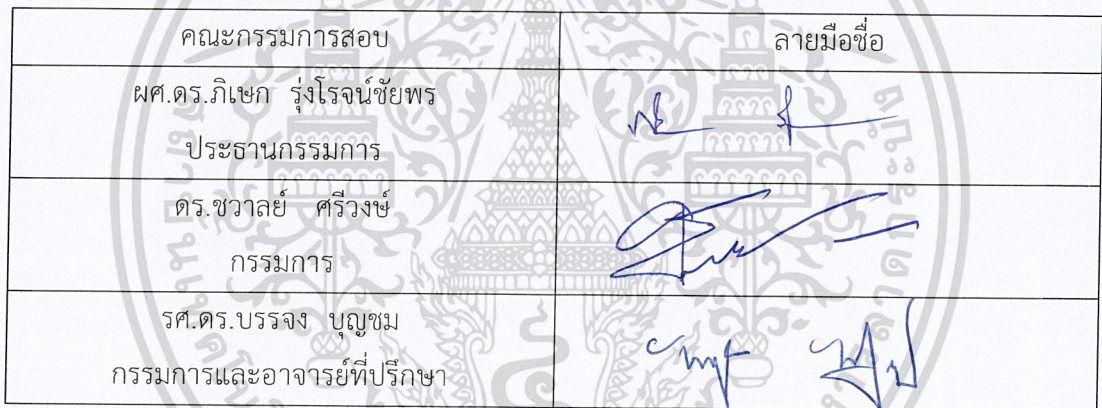 คณะกรรมการสอบ ลายมือชื่อ
ผศ.ดร.ภิเษก รุ่งโรจน์ชัยพร
ประธานกรรมการ
ดร.ชวาลย์ ศรีวงษ์
กรรมการ
รศ.ดร.บรรจง บุญชม
กรรมการและอาจารย์ที่ปรึกษา